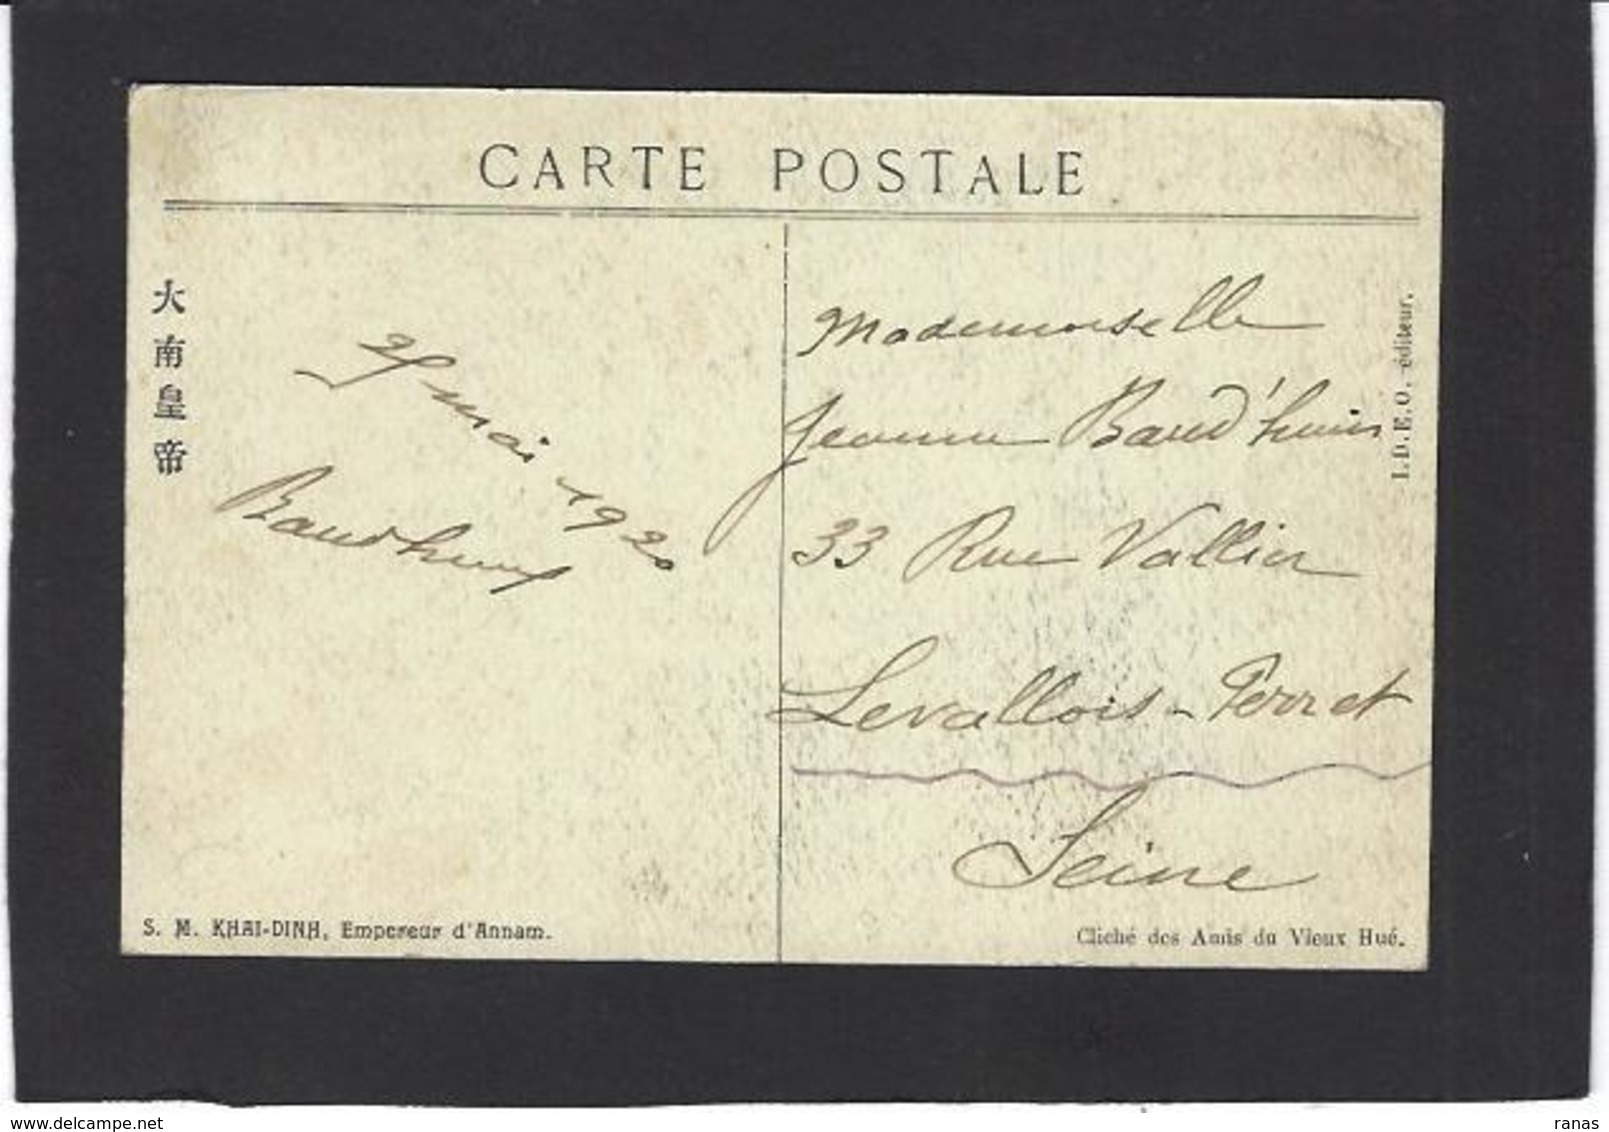 CARTE POSTALE
大南皇帝
25 mai 1920
Baudhuin
Mademoiselle
Jeanne Baud'huin
33 Rue Vallier
Levallois-Perret
Seine
I.D.E.O. éditeur.
S. M. KHAI-DINH, Empereur d'Annam.
Cliché des Amis du Vieux Hué.
delcampe.net
ranas